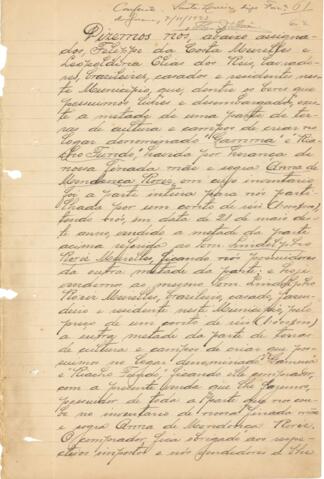 Confere. Santa Luzia,
Dizemos nós, abaixo assigna-
dos, Felippe da Costa Meirelles e
Leopoldina Elias dos Reis, lavrado-
res, brasileiros, casados e residentes nes-
te Municipio, que, dentre os bens que
possuimos livres e desembaraçados, exis-
te a metade de uma parte de ter-
ras de cultura e campos de criar no
lugar denominado e Ria-
cho Fundo, havida por herança de
nossa finada mãe e sogra Anna de
Mendonça Roriz, em cujo inventario
foi a parte inteira para nós parti-
lhada por um conto de réis
tendo nós, em data de 21 de maio des-
te anno, vendido a metade da parte
acima referida ao Snr.
Roriz Meirelles, ficando nós possuidores
da outra metade da parte; e hoje
vendemos ao mesmo Snr.
Roriz Meirelles, brasileiro, casado, fazen-
deiro e residente neste Municipio pelo
preço de um conto de réis
a outra metade da parte de terras
de cultura e campos de criar que pos-
suimos no lugar denominado
e Riacho Fundo, ficando elle comprador,
com a presente venda que lhe fazemos,
possuidor de toda a parte que nos cou-
be no inventario de nossa finada mãe
e sogra Anna de Mendonça Roriz.
O comprador fica obrigado aos respe-
ctivos impostos e nós vendedores a lhe